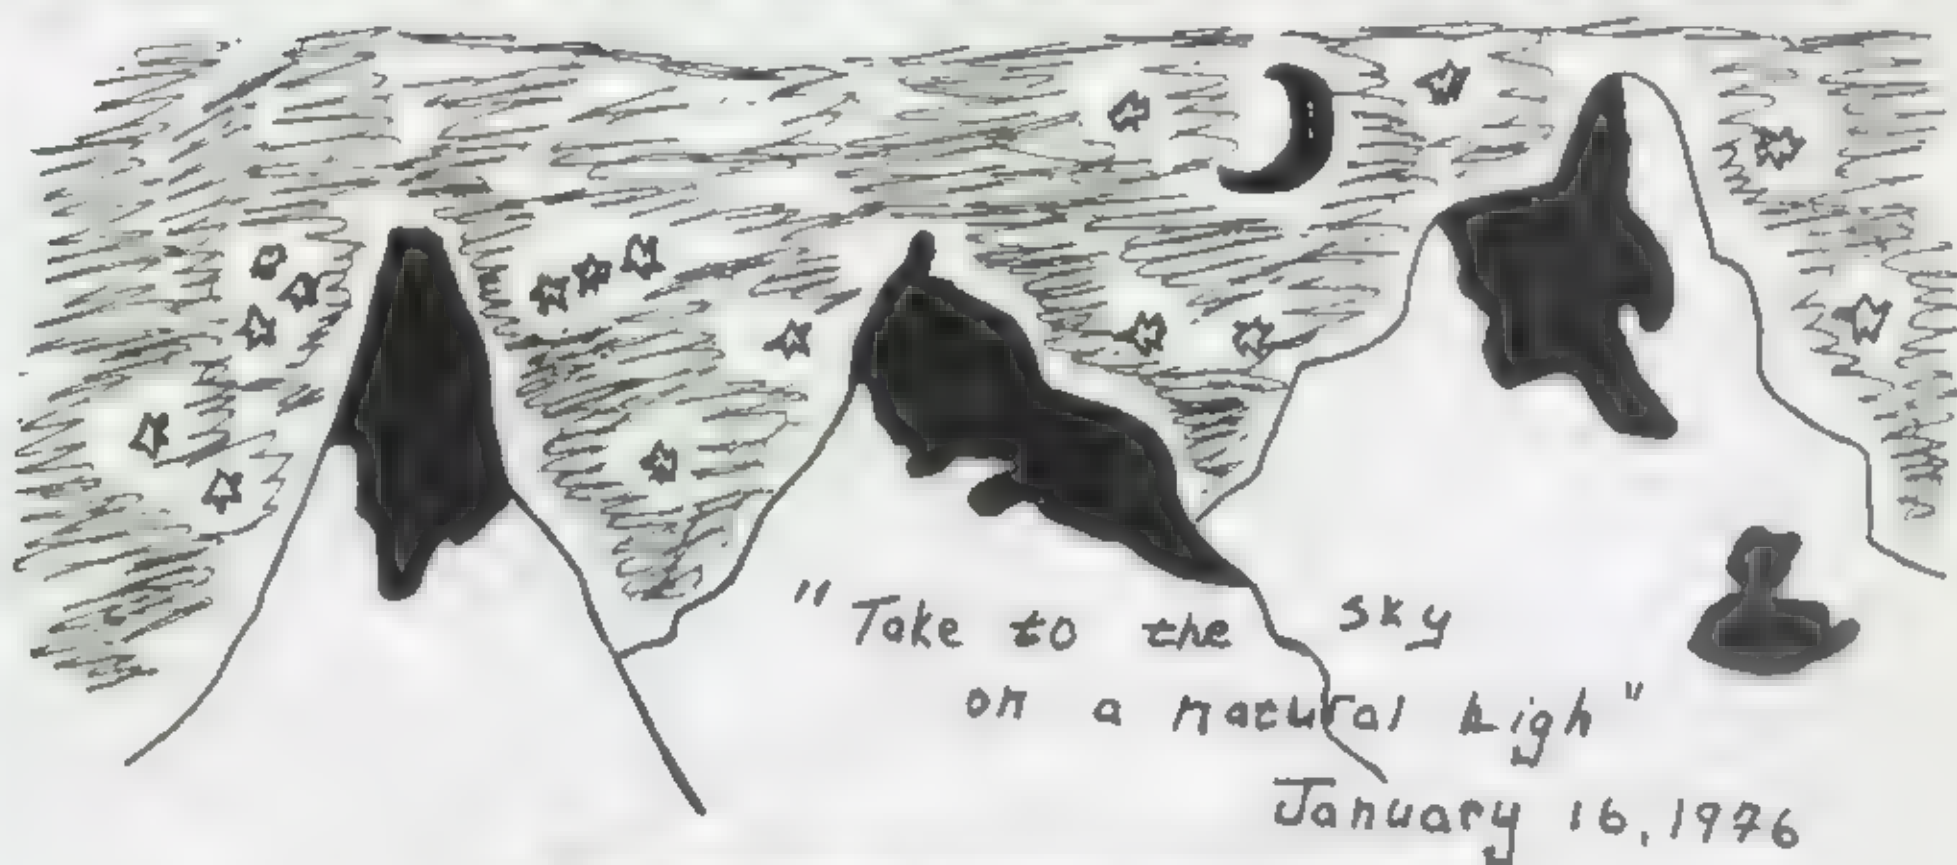 "Take to the sky
on a natural high"
January 16, 1976